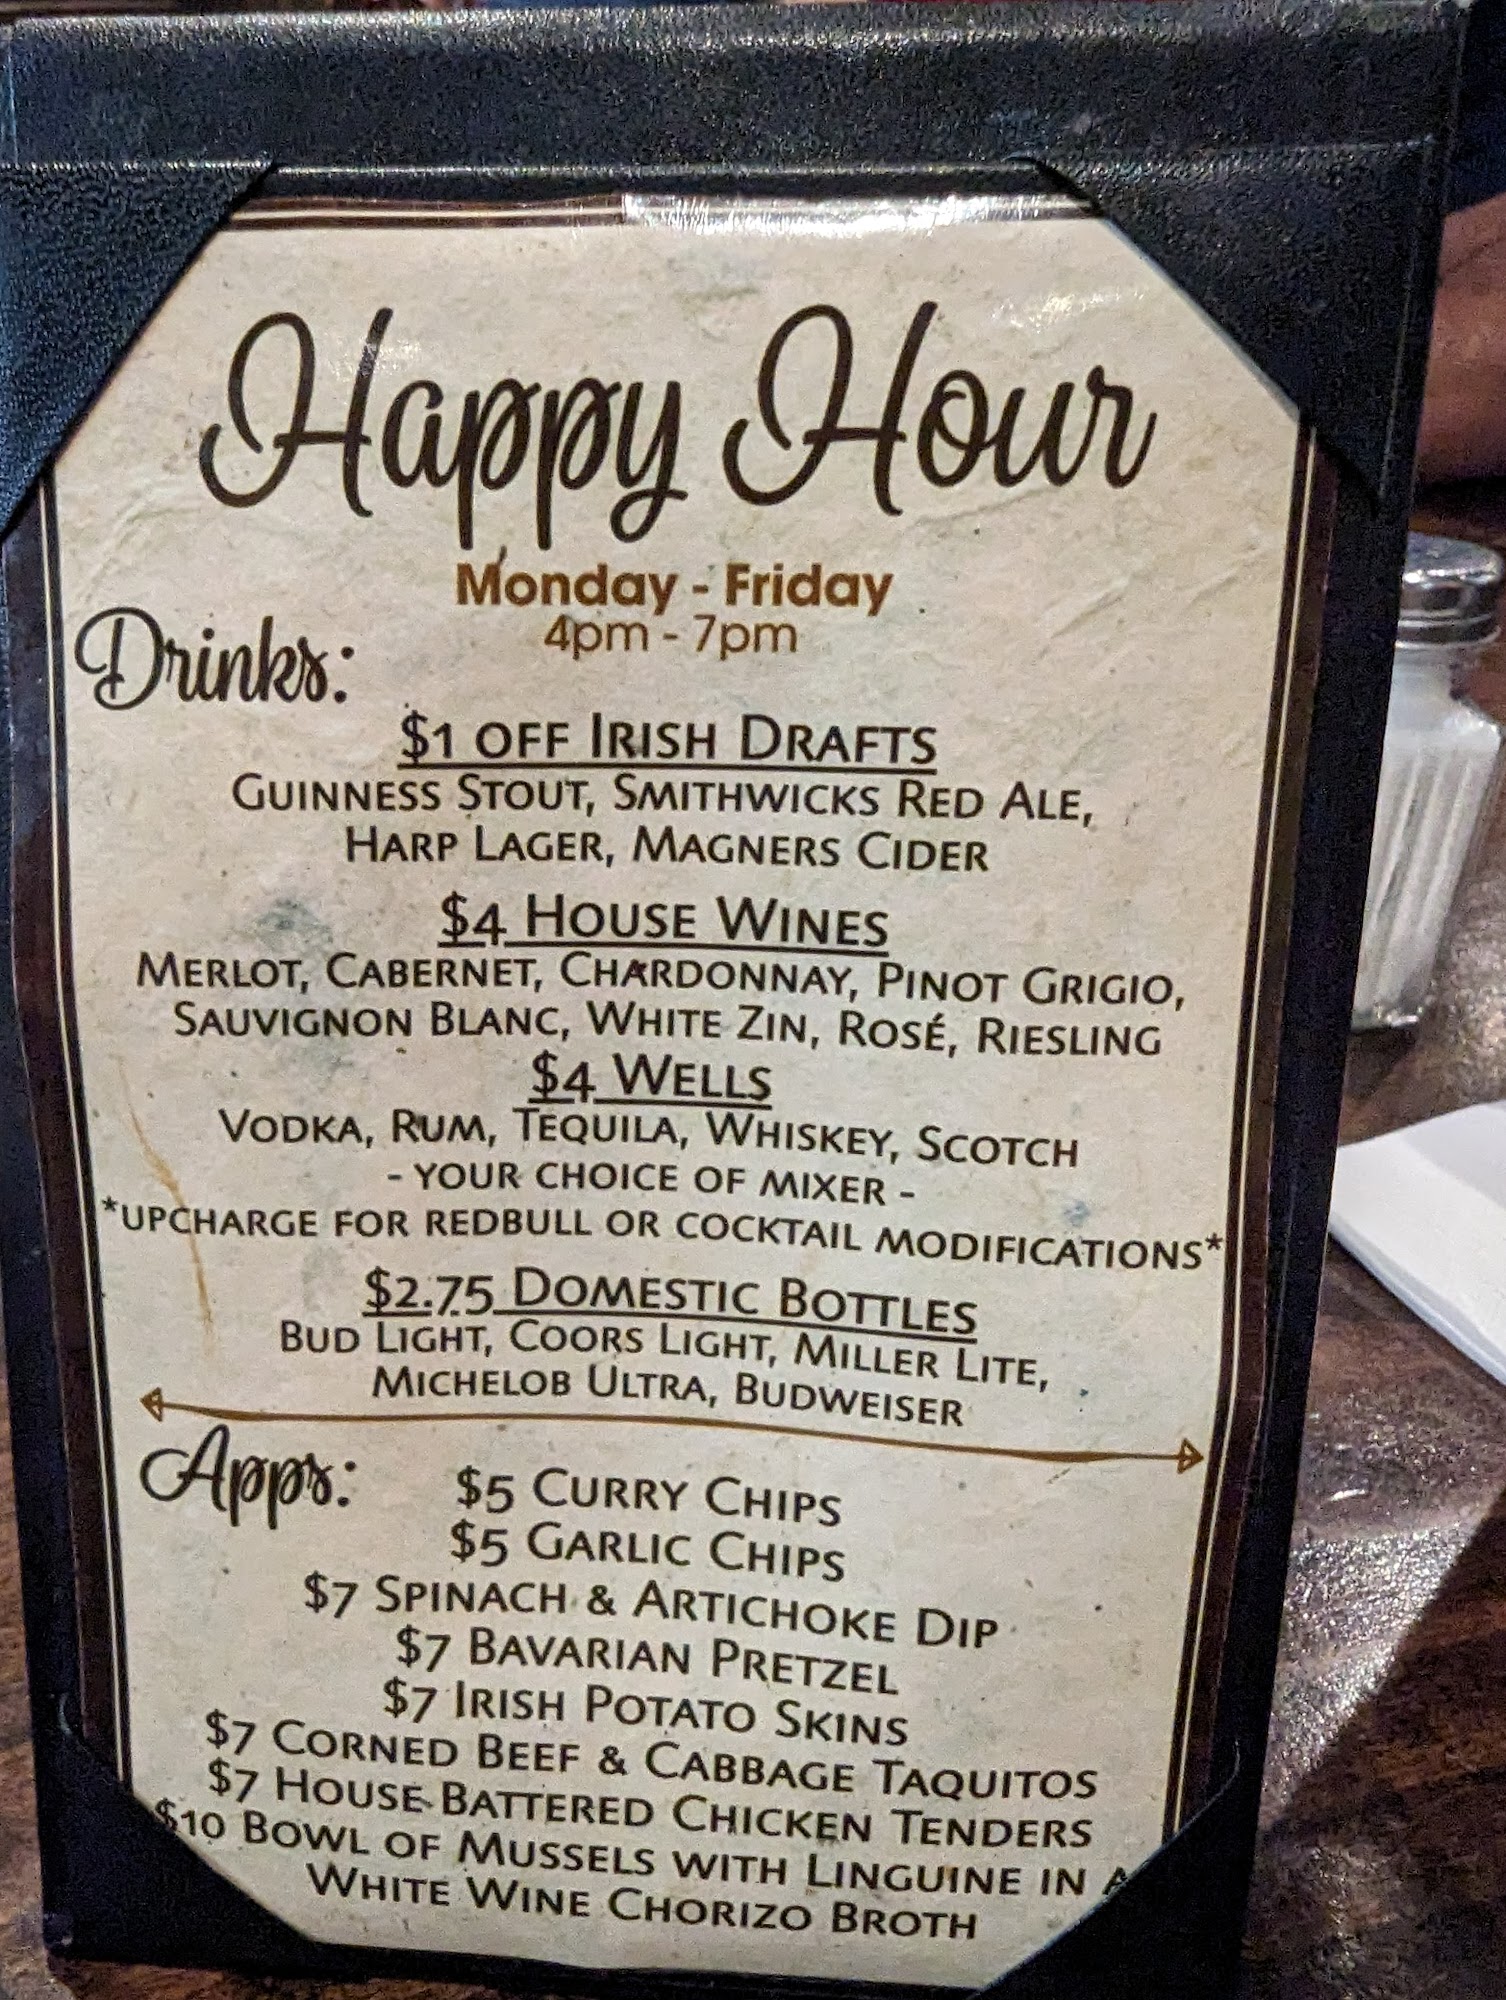 Happy Hour
Monday - Friday
4pm - 7pm
Drinks:
$1 OFF IRISH DRAFTS
GUINNESS STOUT, SMITHWICKS RED ALE,
HARP LAGER, MAGNERS CIDER
$4 HOUSE WINES
MERLOT, CABERNET, CHARDONNAY, PINOT GRIGIO,
SAUVIGNON BLANC, WHITE ZIN, ROSÉ, RIESLING
$4 WELLS
VODKA, RUM, TEQUILA, WHISKEY, SCOTCH
- YOUR CHOICE OF MIXER -
*UPCHARGE FOR REDBULL OR COCKTAIL MODIFICATIONS*
$2.75 DOMESTIC BOTTLES
BUD LIGHT, COORS LIGHT, MILLER LITE,
MICHELOB ULTRA, BUDWEISER
Apps: $5 CURRY CHIPS
$5 GARLIC CHIPS
$7 SPINACH & ARTICHOKE DIP
$7 BAVARIAN PRETZEL
$7 IRISH POTATO SKINS
$7 CORNED BEEF & CABBAGE TAQUITOS
$7 HOUSE BATTERED CHICKEN TENDERS
$10 BOWL OF MUSSELS WITH LINGUINE IN A
WHITE WINE CHORIZO BROTH